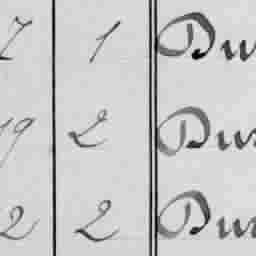 7 1 Dur
19 2 Dur
2 2 Dur